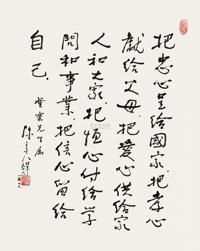 把忠心呈给國家把孝心
獻给父母把爱心供给家
人和大家把恒心付给学
問和事業把信心留给
自己